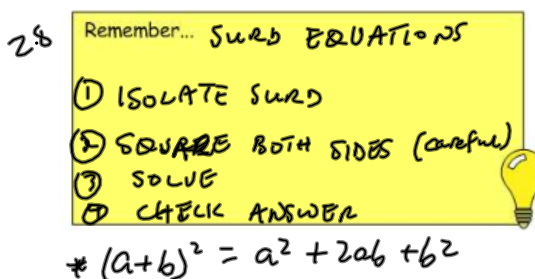 2.8
Remember... SURD EQUATIONS
① ISOLATE SURD
② SQUARE BOTH SIDES (careful)
③ SOLVE
④ CHECK ANSWER
* (a+b)² = a² + 2ab + b²